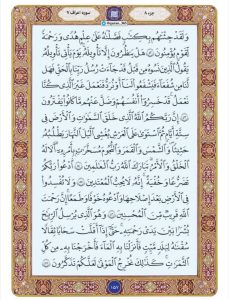 سوره اعراف ٧
جزء ٨
وَلَقَدْ جِئْنَاهُمْ بِكِتَابٍ فَصَّلْنَاهُ عَلَىٰ عِلْمٍ هُدًى وَرَحْمَةً
لِقَوْمٍ يُؤْمِنُونَ ۝ هَلْ يَنْظُرُونَ إِلَّا تَأْوِيلَهُ يَوْمَ يَأْتِي تَأْوِيلُهُ
يَقُولُ الَّذِينَ نَسُوهُ مِنْ قَبْلُ قَدْ جَاءَتْ رُسُلُ رَبِّنَا بِالْحَقِّ فَهَلْ
لَنَا مِنْ شُفَعَاءَ فَيَشْفَعُوا لَنَا أَوْ نُرَدُّ فَنَعْمَلَ غَيْرَ الَّذِي كُنَّا
نَعْمَلُ قَدْ خَسِرُوا أَنْفُسَهُمْ وَضَلَّ عَنْهُمْ مَا كَانُوا يَفْتَرُونَ
۝ إِنَّ رَبَّكُمُ اللَّهُ الَّذِي خَلَقَ السَّمَاوَاتِ وَالْأَرْضَ فِي
سِتَّةِ أَيَّامٍ ثُمَّ اسْتَوَىٰ عَلَى الْعَرْشِ يُغْشِي اللَّيْلَ النَّهَارَ يَطْلُبُهُ
حَثِيثًا وَالشَّمْسَ وَالْقَمَرَ وَالنُّجُومَ مُسَخَّرَاتٍ بِأَمْرِهِ أَلَا لَهُ
الْخَلْقُ وَالْأَمْرُ تَبَارَكَ اللَّهُ رَبُّ الْعَالَمِينَ ۝ ادْعُوا رَبَّكُمْ
تَضَرُّعًا وَخُفْيَةً إِنَّهُ لَا يُحِبُّ الْمُعْتَدِينَ ۝ وَلَا تُفْسِدُوا
فِي الْأَرْضِ بَعْدَ إِصْلَاحِهَا وَادْعُوهُ خَوْفًا وَطَمَعًا إِنَّ رَحْمَتَ
اللَّهِ قَرِيبٌ مِنَ الْمُحْسِنِينَ ۝ وَهُوَ الَّذِي يُرْسِلُ الرِّيَاحَ
بُشْرًا بَيْنَ يَدَيْ رَحْمَتِهِ حَتَّىٰ إِذَا أَقَلَّتْ سَحَابًا ثِقَالًا
سُقْنَاهُ لِبَلَدٍ مَيِّتٍ فَأَنْزَلْنَا بِهِ الْمَاءَ فَأَخْرَجْنَا بِهِ مِنْ كُلِّ
الثَّمَرَاتِ كَذَٰلِكَ نُخْرِجُ الْمَوْتَىٰ لَعَلَّكُمْ تَذَكَّرُونَ ۝
١٥٧